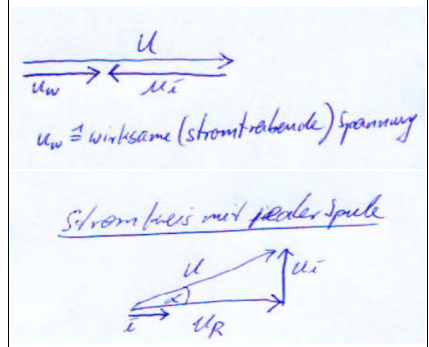 U
u_w u_i
u_w ≙ wirksame (stromtreibende) Spannung
Stromkreis mit realer Spule
U u_i
α
i u_R